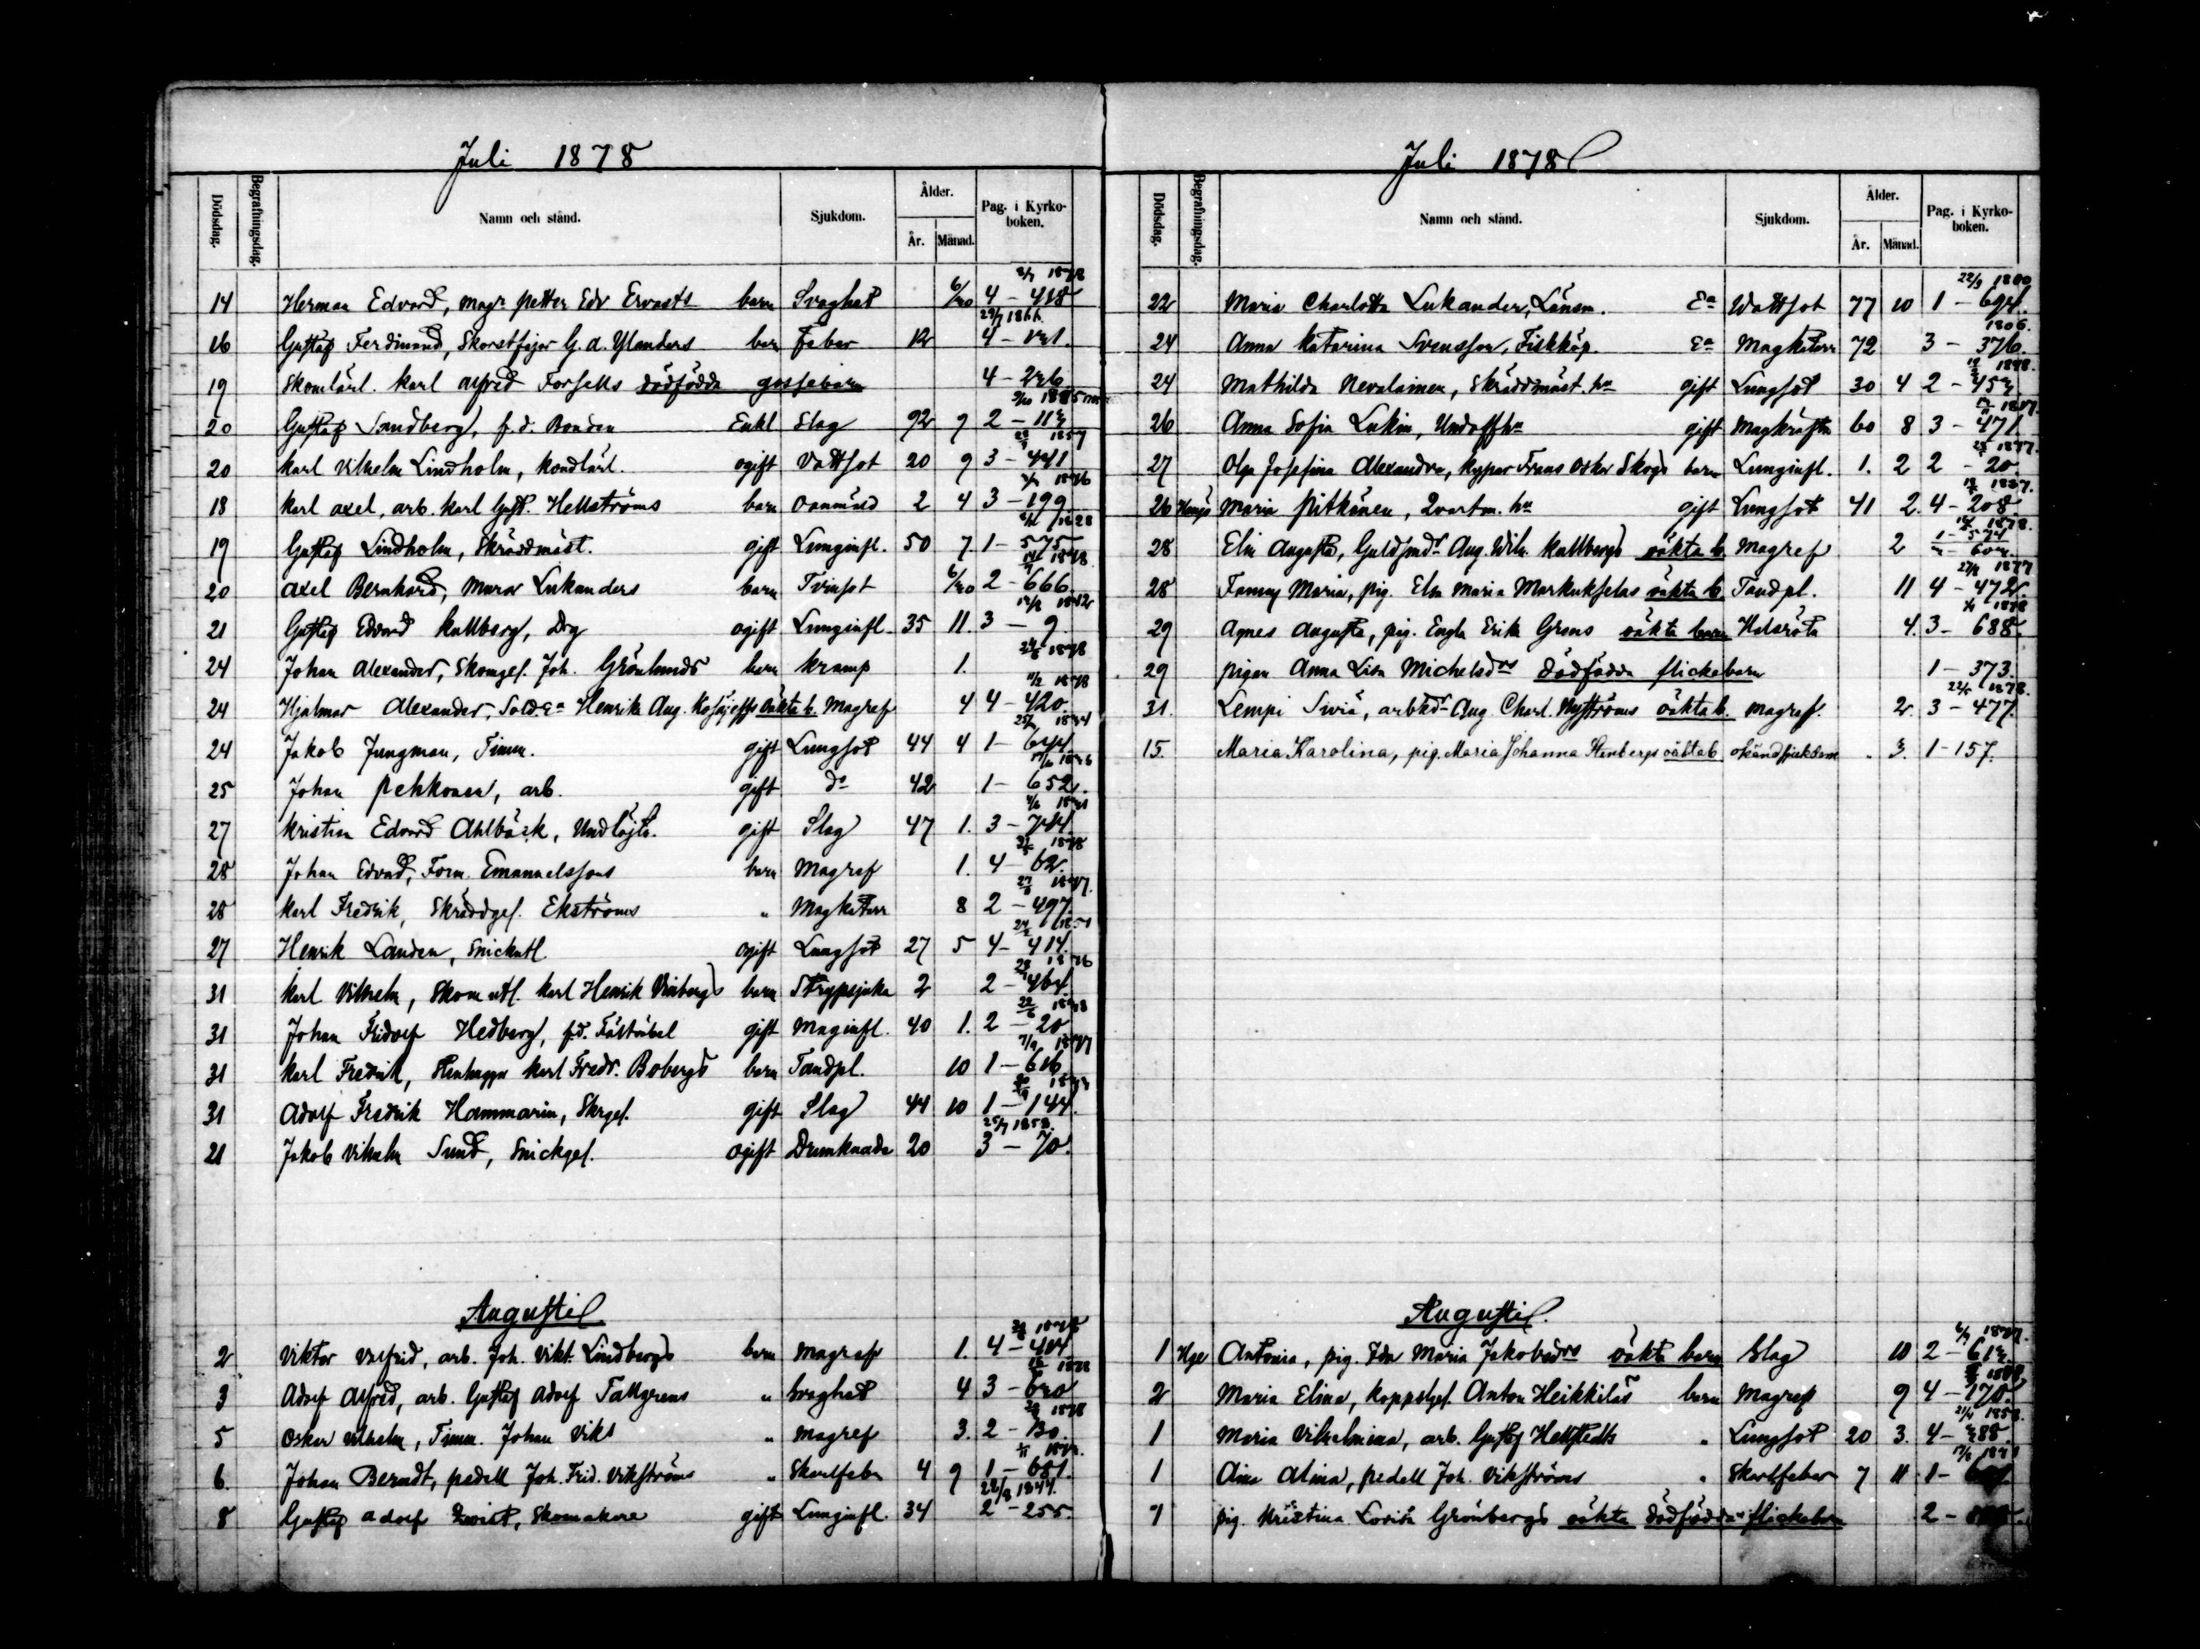 Juli 1878
Dödsdag. Begrafningsdag. Namn och stånd. Sjukdom. Ålder. År. Månad. Pag. i Kyrko-boken.
14 Herman Edvard, Petter Edv Ervasts barn Svaghet 6/20 4 - 418
29/7 1866.
16 Gustaf Ferdinand, Skorstfejar G. A. Ylanders barn Feber 12
19 Skomlärl. Karl Alfred Forsells dödfödda gossebarn 4 - 226
20 Gustaf Sandberg, f.d. Bonden Enkl Slag 92 9
20 Karl Vilhelm Lindholm, Kondlärl. ogift Vattsot 20 9 3 - 441
18 Karl Axel, arb. Karl Gust. Hellströms barn Oanmäld 2 4 3 - 199
19 Gustaf Lindholm, Skräddmäst. gift Lunginfl. 50 7. 1 - 575
20 Axel Bernhard, Murar Lukanders barn Tvinsot 6/20 2 - 666.
21 Gustaf Edvard Kullberg, Drg ogift Lunginfl. 35 11. 3 - 9
24 Johan Alexander, Skomgel. Joh. Grönlunds barn Kramp 1.
24 Hjalmar Alexander, Sold. Ea Henrika Aug. oäkta b. Magref 4 4 - 420.
24 Jakob Jungman, Timm. gift Lungsot 44 4 1 - 644
25 Johan Pehkonen, arb. gift do 42 1 - 652.
27 Kristian Edvard Ahlbäck, Undlöjtn. gift Slag 47 1. 3 - 744.
28 Johan Edvad, Form. Emanuelssons barn Magref 1. 4 - 62.
28 Karl Fredrik, Skräddgel. Ekströms " Magkatarr 8 2 - 497.
27 Henrik Landen, Snickutl. ogift Lungsot 27 5 4 - 414.
31 Karl Vilhelm, Skom utl. Karl Henrik Vinbergs barn Strypsjuka 2 2 - 464.
31 Johan Fridolf Hedberg, f.d. gift Maginfl. 40 1. 2 - 20
31 Karl Fredrik, Karl Fredr. Bobergs barn Tandpl. 10 1 - 616
31 Adolf Fredrik Hammarin, Skrgel. gift Slag 44 10 1 - 144.
25/7 1858.
21 Jakob Vilhelm Sund, Snickgel. ogift Drunknade 20 3 - 70.
Augusti
2 Viktor Valfrid, arb. Joh. Vikt. Lindbergs barn Magref 1. 4 - 404.
3 Adolf Alfred, arb. Gustaf Adolf Tallgrens " Svaghet 4 3 - 620
5 Oskar Vilhelm, Timm. Johan Vikt " Magref 3. 2 - 130.
6. Johan Berndt, pedell Joh. Frid. Vikströms " Skarlfeber 4 9 1 - 681.
22/8 1844.
8 Gustaf Adolf Qvist, Skomakare gift Lunginfl. 34 2 - 255.
Juli 1878
Dödsdag. Begrafningsdag. Namn och stånd. Sjukdom. Ålder. År. Månad. Pag. i Kyrko-boken.
22/9 1800
22 Maria Charlotta Lukander, Länsm. Ea Wattsot 77 10 1 - 694.
1806.
24 Anna Katarina Svensson, Fiskköp. Ea Magkatarr 72 3 - 376.
24 Mathilda Nevalainen, Skräddmäst. hu gift Lungsot 30 4
26 Anna Sofia Lukin, Undoffhu gift Magkräfta 60 8 3 - 471
27 Olga Josefina Alexandra, Kypar Frans Oskar Skogs barn Lunginfl. 1. 2 2 - 20.
26 Maria Pitkänen, Qvartm. hu gift Lungsot 41 2. 4 - 208.
28 Elin Augusta, Guldsmds Aug. Wilh. Kullbergs oäkta b. Magref 2 1 - 574
28 Fanny Maria, pig. Elsa Maria Markukselas oäkta b. Tandpl. 11 4 - 472.
29 Agnes Augusta, pig. Engla Erika Grens oäkta barn Halsröta 4. 3 - 688.
29 pigan Anna Lisa Michelsdrs dödfödda flickebarn 1 - 373.
22/5 1878.
31. Lempi Siviä, arbkds Aug. Charl. Nyströms oäkta b. Magref. 2. 3 - 477.
15. Maria Karolina, pig. Maria Johanna Stenbergs oäkta b okänd sjukdom " 3. 1 - 157.
Augusti.
1 Hge Antonia, pig. Ida Maria Jakobsdrs oäkta barn Slag 10
2 Maria Elina, Koppslgel. Anton Heikkiläs barn Magref 9 4 - 170.
21/4 1858.
1 Maria Vilhelmina, arb. Gustaf Hellstedts " Lungsot 20 3.
1 Aina Alina, pedell Joh. Vikströms " Skarlfeber 7 11
7 pig. Kristina Lovisa Grönbergs oäkta dödfödda flickebarn